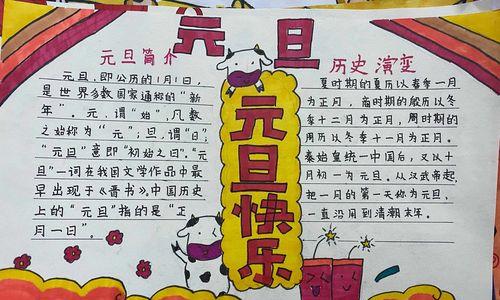 元旦
元旦简介
元旦，即公历的1月1日，
是世界多数国家通称的“新
年”。元，谓“始”，凡数
之始称为“元”；旦，谓“日”；
“元旦”意即“初始之日”。“元
旦”一词在我国文学作品中最
早出现于《晋书》。中国历史
上的“元旦”指的是“正
月一日”。
元旦快乐
历史演变
夏时期的夏历以春季一月
为正月，商时期的殷历以冬
季十二月为正月，周时期的
周历以冬季十一月为正月。
秦始皇统一中国后，又以十
月初一为元旦。从汉武帝起，
把一月的第一天称为元旦，
一直沿用到清潮末年。